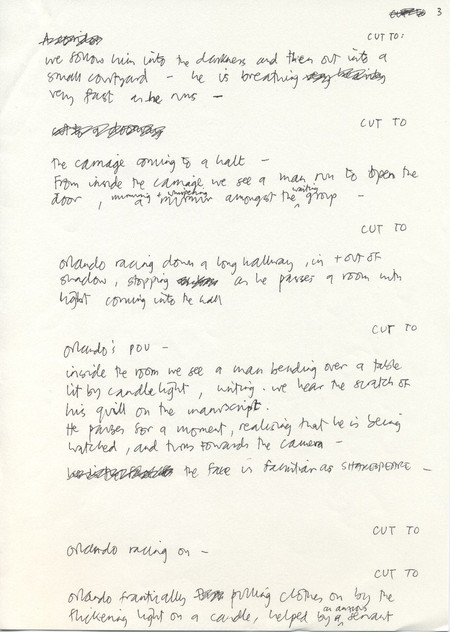 3
CUT TO:
we follow him into the darkness and then out into a
small courtyard – he is breathing
very fast as he runs –
CUT TO
the carriage coming to a halt –
From inside the carriage we see a man run to open the
murmuring + whispering waiting
door, a murmur amongst the group –
CUT TO
Orlando racing down a long hallway, in + out of
shadow, stopping as he passes a room with
light coming into the hall
CUT TO
Orlando's POV –
inside the room we see a man bending over a table
lit by candlelight, writing. we hear the scratch of
his quill on the manuscript.
He pauses for a moment, realising that he is being
watched, and turns towards the camera –
the face is familiar as SHAKESPEARE –
CUT TO
Orlando racing on –
CUT TO
Orlando frantically pulling clothes on by the
an anxious
flickering light on a candle, helped by a servant